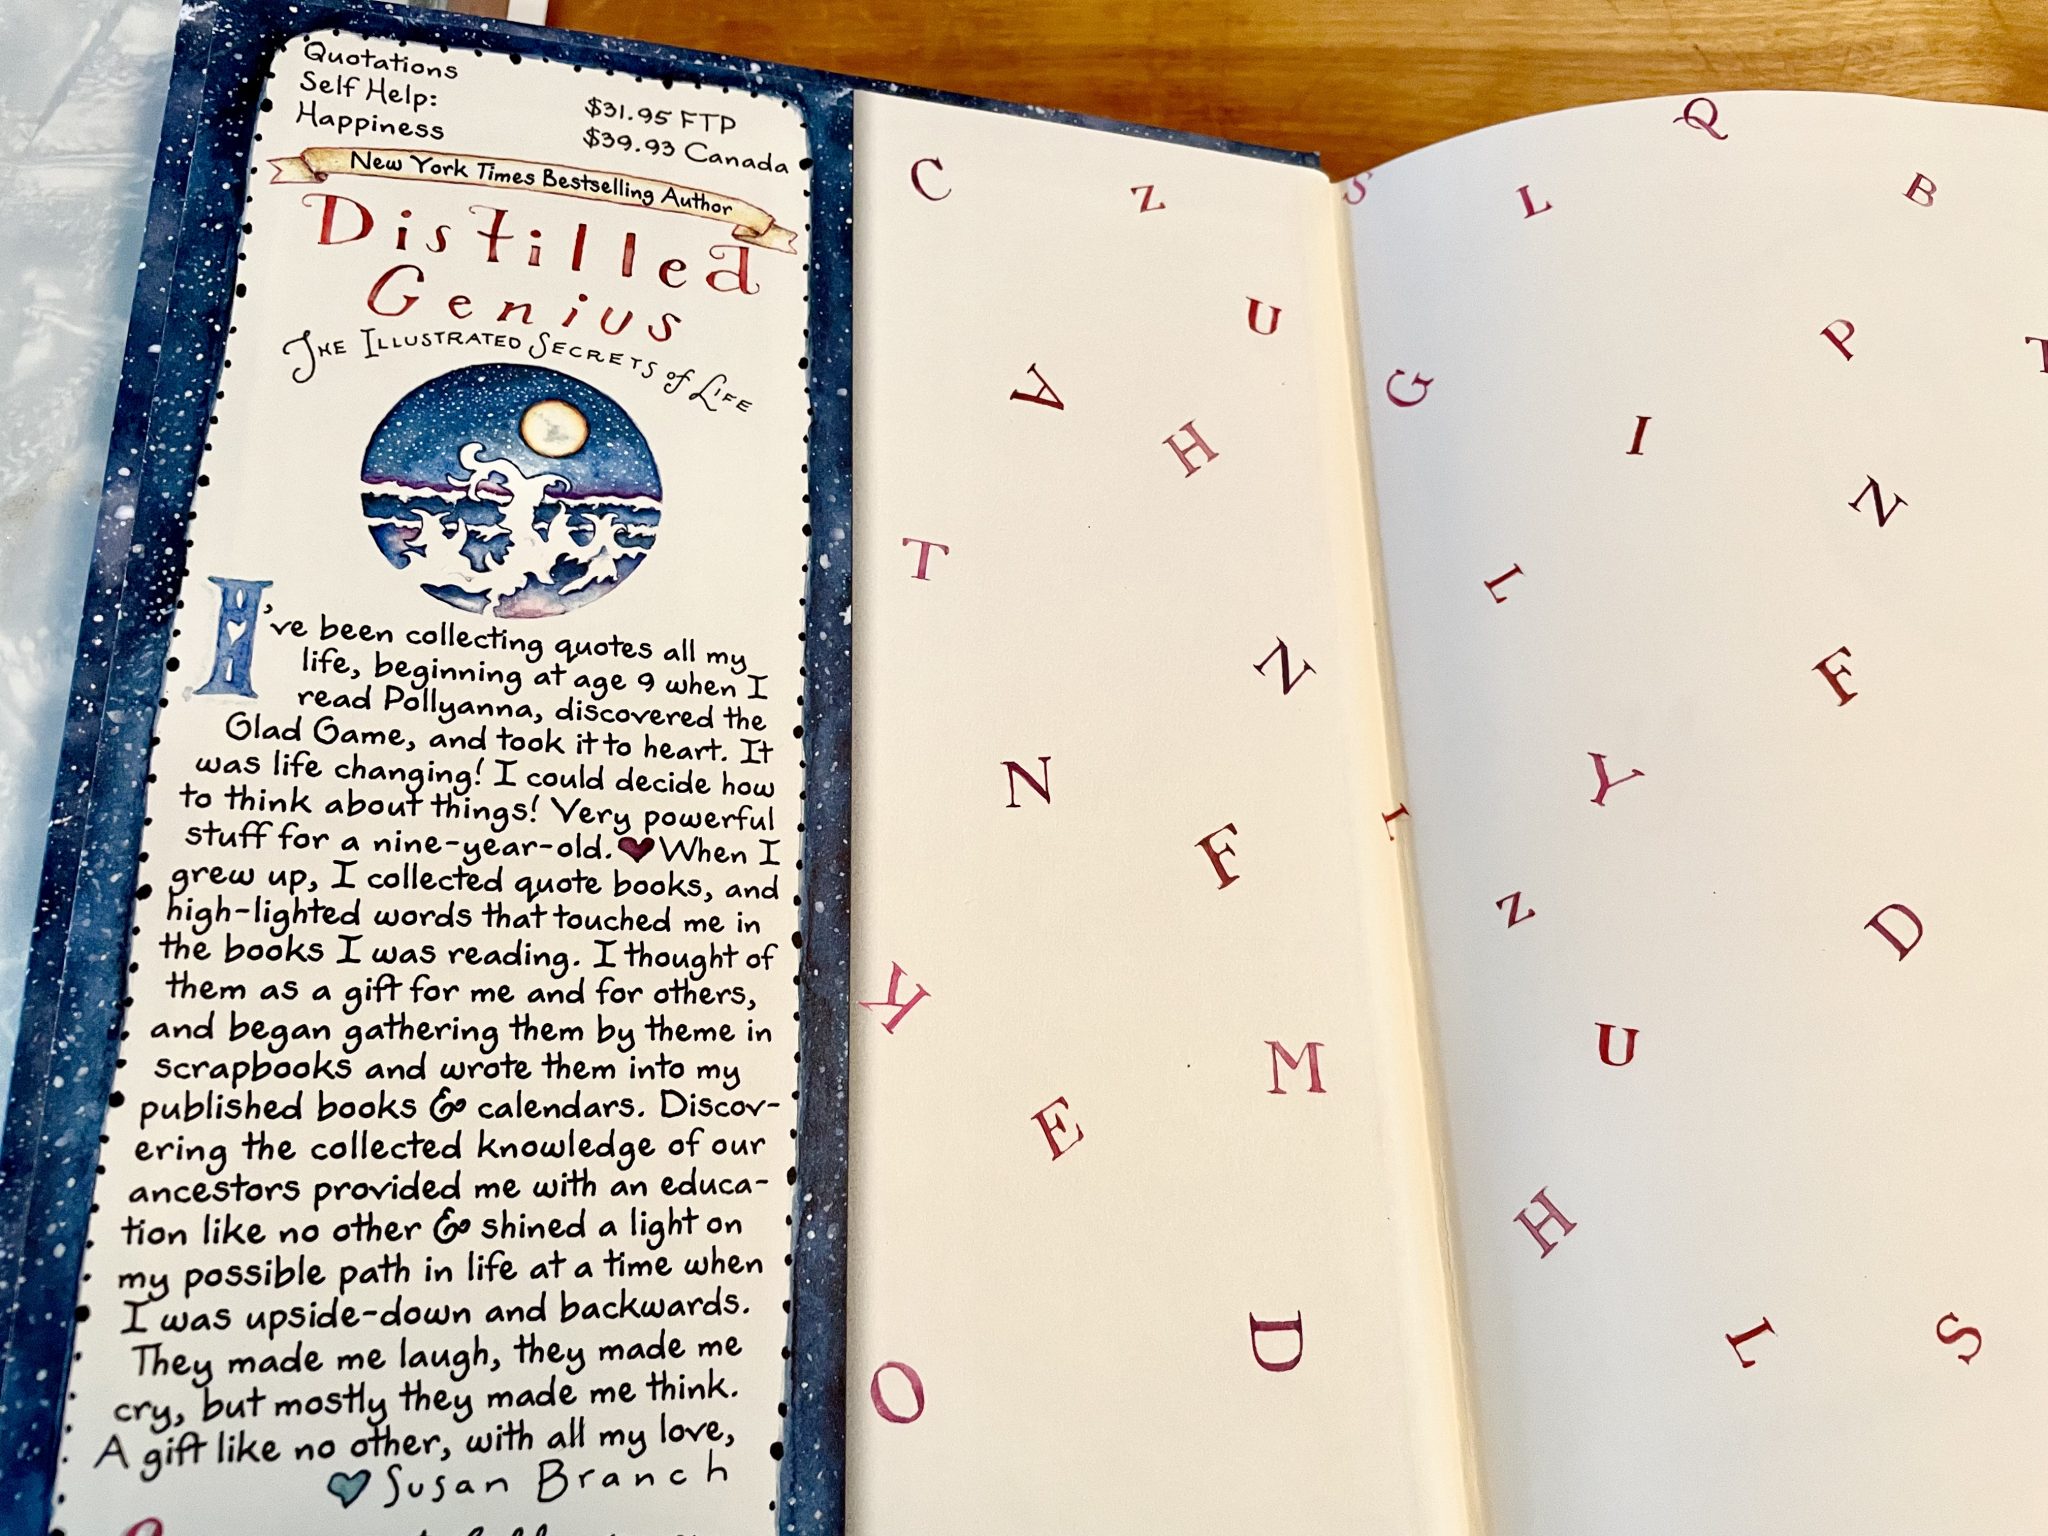 Quotations
Self Help:
Happiness
$31.95 FTP
$39.93 Canada
New York Times Bestselling Author
Distilled
Genius
THE ILLUSTRATED SECRETS of LIFE
I've been collecting quotes all my
life, beginning at age 9 when I
read Pollyanna, discovered the
Glad Game, and took it to heart. It
was life changing! I could decide how
to think about things! Very powerful
stuff for a nine-year-old. When I
grew up, I collected quote books, and
high-lighted words that touched me in
the books I was reading. I thought of
them as a gift for me and for others,
and began gathering them by theme in
scrapbooks and wrote them into my
published books & calendars. Discov-
ering the collected knowledge of our
ancestors provided me with an educa-
tion like no other & shined a light on
my possible path in life at a time when
I was upside-down and backwards.
They made me laugh, they made me
cry, but mostly they made me think.
A gift like no other, with all my love,
Susan Branch
C
Z
U
A
H
T
N
N
F
K
M
E
D
O
S
L
Q
B
P
T
G
I
N
L
F
Y
L
Z
D
U
H
L
S